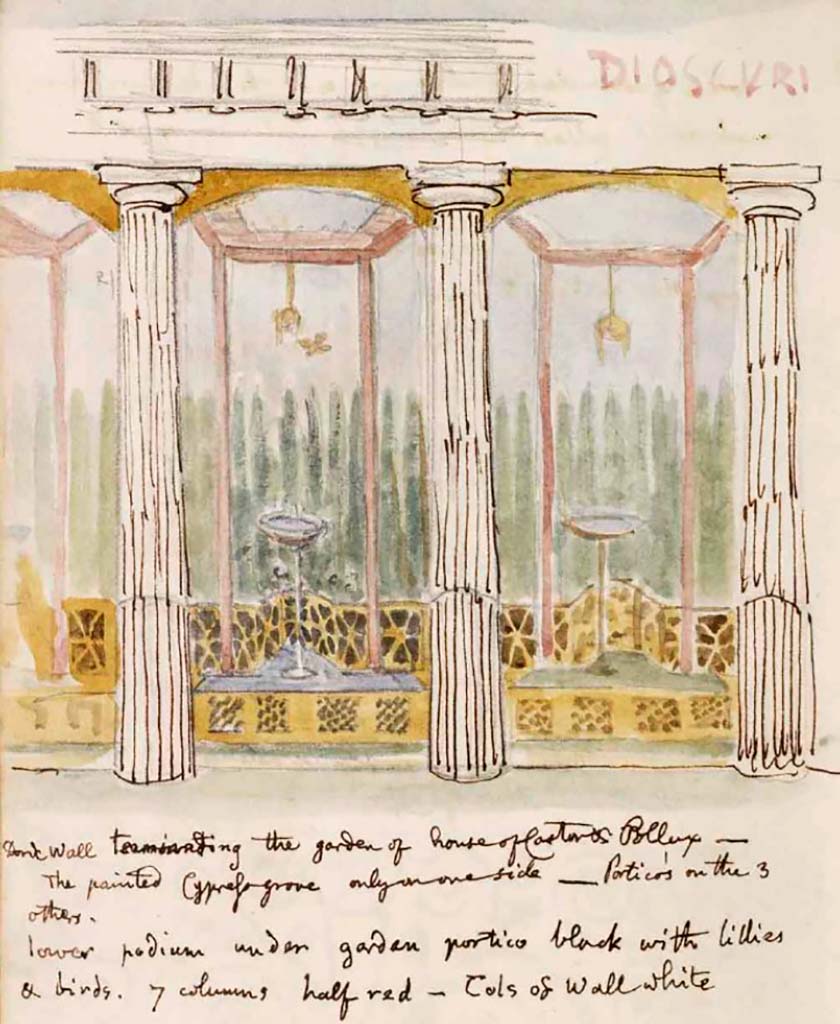 DIOSCVRI
Doric Wall terminating the garden of house of Castor & Pollux —
The painted Cypress grove only on one side — Porticos on the 3
others.
lower podium under garden portico black with lillies
& birds. 7 columns half red — Cols of Wall white